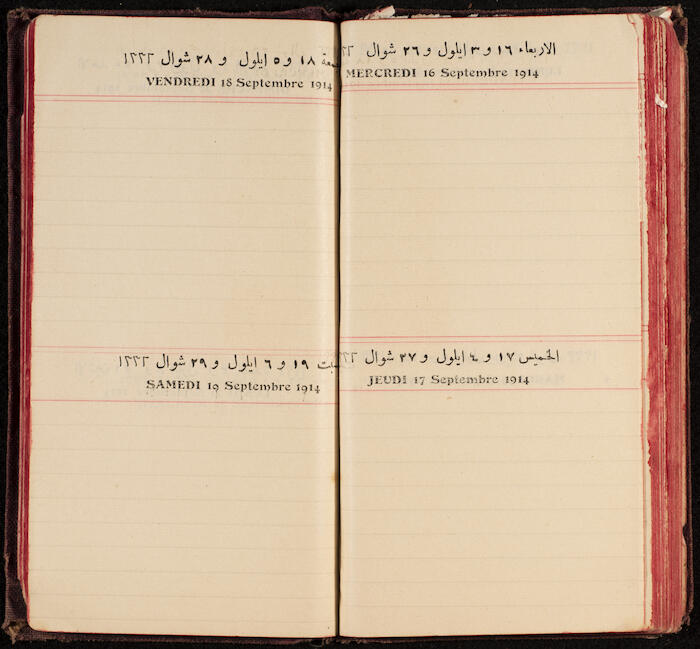 الاربعاء ١٦ و ٣ ايلول و ٢٦ شوال
MERCREDI 16 Septembre 1914
الخميس ١٧ و ٤ ايلول و ٢٧ شوال
JEUDI 17 Septembre 1914
١٨ و ٥ ايلول و ٢٨ شوال ١٣٣٢
VENDREDI 18 Septembre 1914
١٩ و ٦ ايلول و ٢٩ شوال ١٣٣٢
SAMEDI 19 Septembre 1914